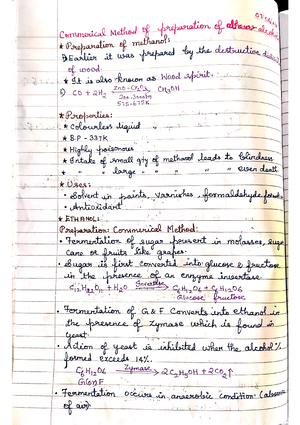 Commerical Method of preparation of alcohol
* Preparation of methanol:
Earlier it was prepared by the destructive
of wood.
* It is also known as Wood spirit.
CO + 2H2 ZnO-Cr2O3 CH3OH
200-300atm
573-673K
* Properties:
* Colourless liquid
* B.P - 337K
* Highly poisonous
* Intake of small qty of methanol leads to blindness
* " " large " " " " even death
* Uses:
• Solvent in paints, varnishes, formaldehyde
• Antioxidant
* ETHANOL:
Preparation: Commerical Method:
• Fermentation of sugar present in molasses, sugar
cane or fruits like grapes.
• Sugar is first converted into glucose & fructose
in the presence of an enzyme invertase
C12H22O11 + H2O Invertase C6H12O6 + C6H12O6
Glucose fructose
• Fermentation of G & F Converts into ethanol in
the presence of zymase which is found in
yeast.
• Action of yeast is inhibited when the alcohol %
formed exceeds 14%.
C6H12O6 Zymase 2C2H5OH + 2CO2↑
G(or)F
• Fermentation occurs in anaerobic condition (absence
of air)